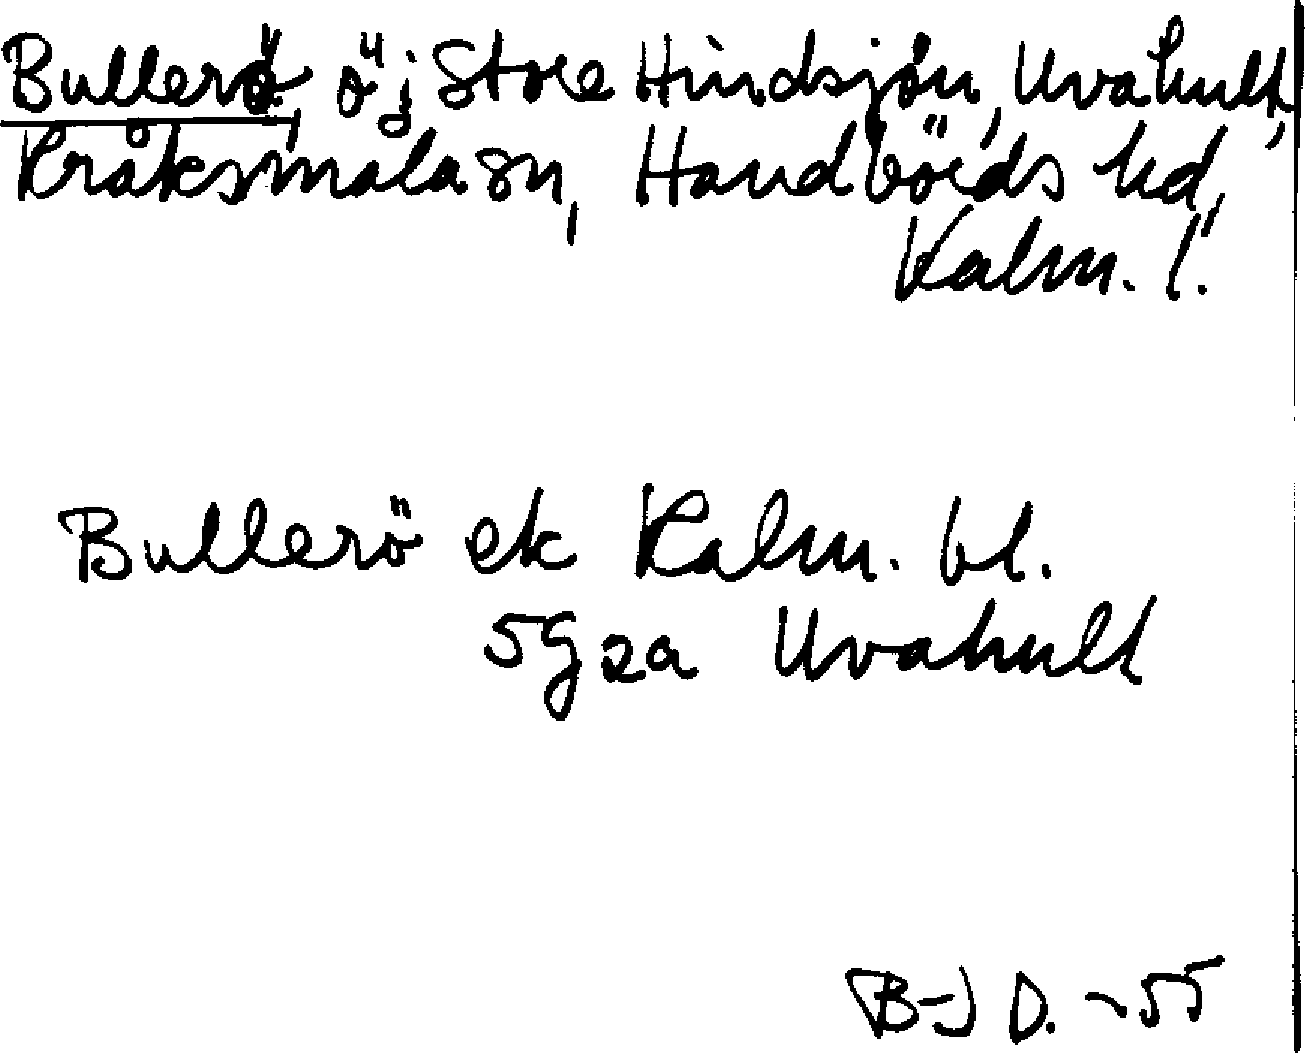 Bullerö, ö i Store Hindsjön, Uvahult,
Kråksmåla sn, Handbörds hd,
Kalm. l.
Bullerö ek Kalm. bl.
5G2a Uvahult
B-J D. -55